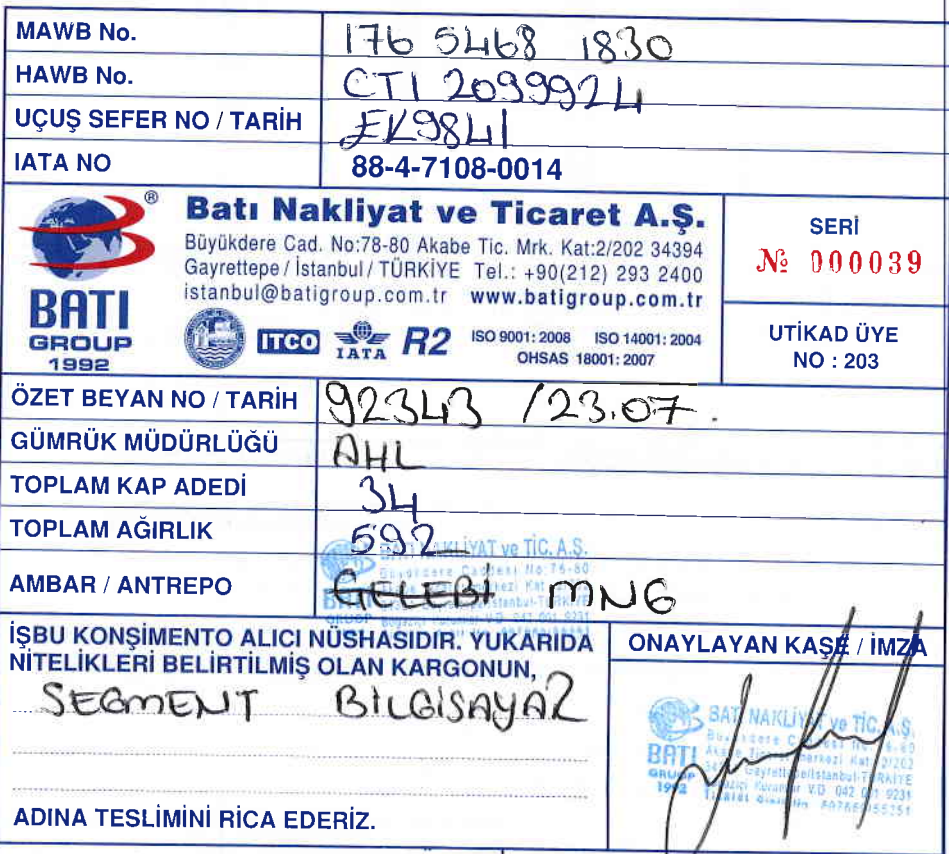 MAWB No. 176 5468 1830
HAWB No. CTI 2099924
UÇUŞ SEFER NO / TARİH EK9841
IATA NO 88-4-7108-0014
Batı Nakliyat ve Ticaret A.Ş.
Büyükdere Cad. No:78-80 Akabe Tic. Mrk. Kat:2/202 34394
Gayrettepe / İstanbul / TÜRKİYE Tel.: +90(212) 293 2400
istanbul@batigroup.com.tr www.batigroup.com.tr
BATI
GROUP
1992
ITCO IATA R2 ISO 9001: 2008 ISO 14001: 2004
OHSAS 18001: 2007
SERİ
№ 000039
UTİKAD ÜYE
NO : 203
ÖZET BEYAN NO / TARİH 92343 /23.07.
GÜMRÜK MÜDÜRLÜĞÜ AHL
TOPLAM KAP ADEDİ 34
TOPLAM AĞIRLIK 592
BATI NAKLİYAT ve TİC. A.Ş.
AMBAR / ANTREPO ÇELEBİ MNG
İŞBU KONŞİMENTO ALICI NÜSHASIDIR. YUKARIDA
NİTELİKLERİ BELİRTİLMİŞ OLAN KARGONUN,
SEGMENT BİLGİSAYAR
ADINA TESLİMİNİ RİCA EDERİZ.
ONAYLAYAN KAŞE / İMZA
BATI NAKLİYAT ve TİC. A.Ş.
BATI
GROUP
1992